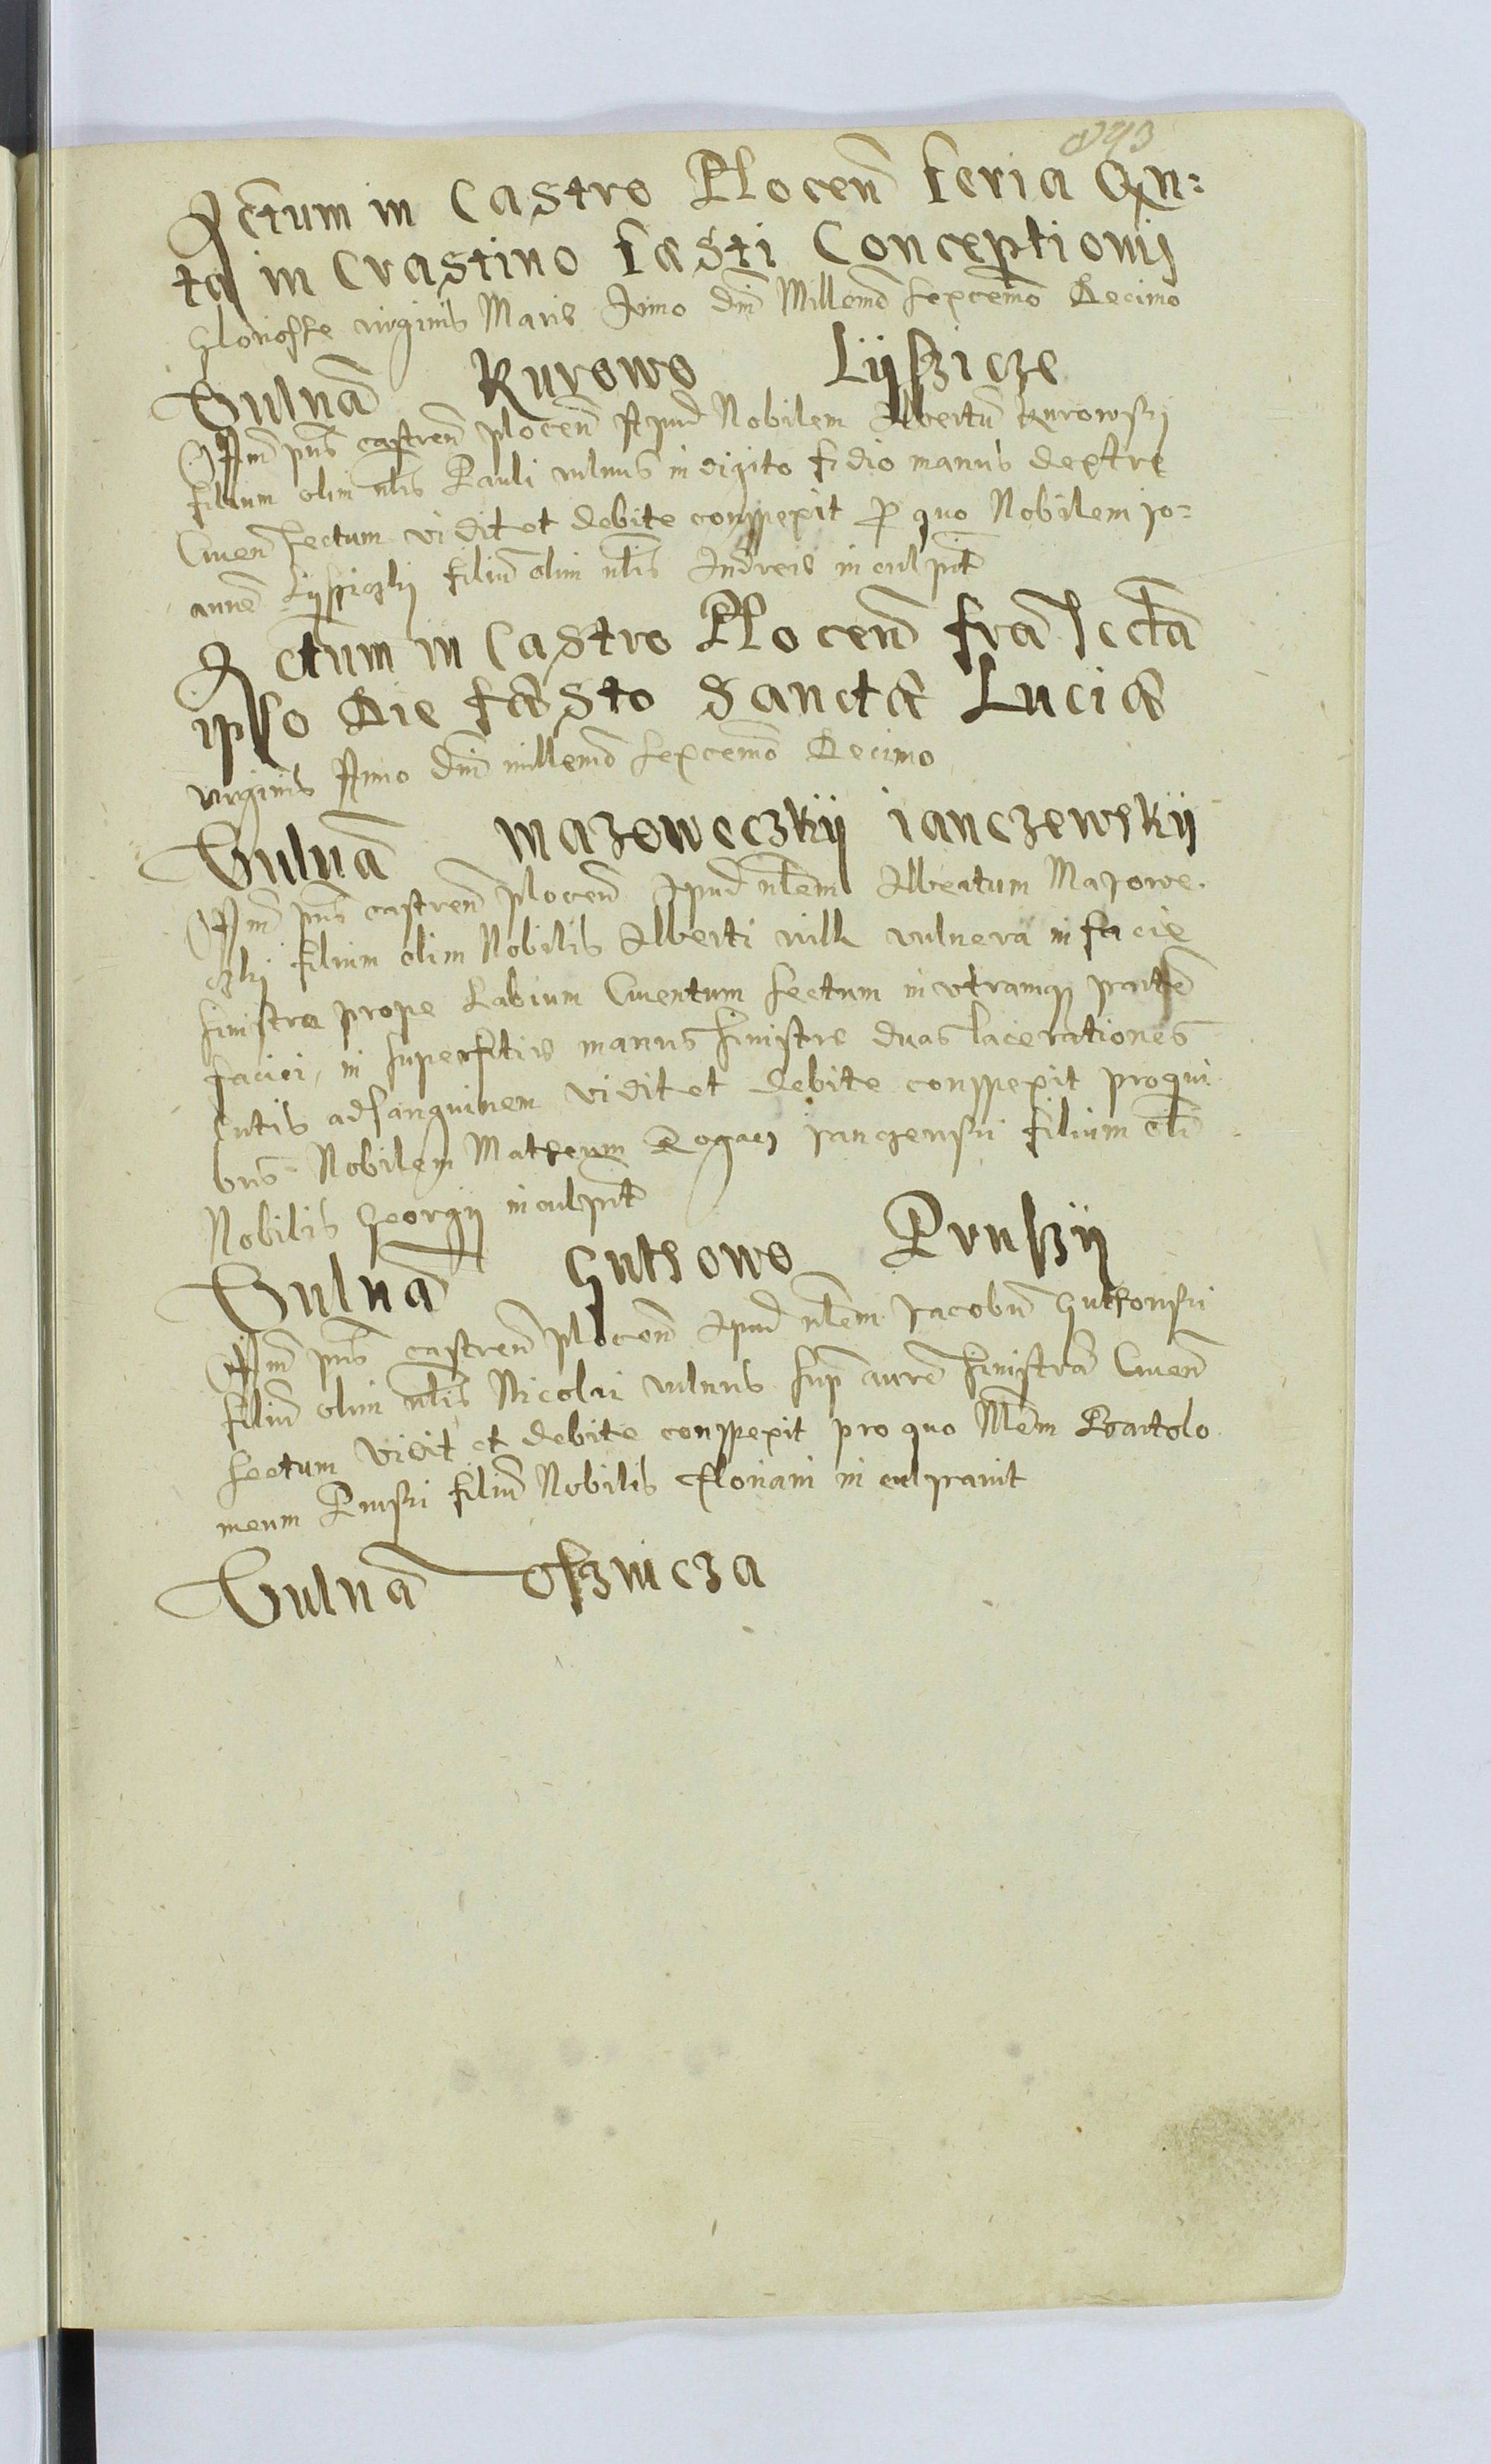 Actum in Castro Plocen feria Qin:
ta in Crastino fæsti Conceptionis
gloriosse virginis Marie Anno dni Millemo sexcemo Decimo
Vulna Kurowo Lyssicze
Am pns castren plocen Apud Nobilem Albertu Kurowsky
filium olim nlis Pauli vulnus in digito fidio manus dextre
Cruen sectum vidit et debite conspexit p quo Nobilem Jo:
anne Lyssiczky filiu olim nlis Andreis inculpit
Actum in Castro Plocen fra Secta
ipso Die fæsto Sanctæ Luciæ
virginis Anno dni millemo sexcemo Decimo
Vulna Mazoweczkij Janczewskij
Am pns castren plocen Apud nlem Albertum Mazowe
czky filium olim Nobilis Alberti wilk vulnera in facie
sinistra prope Labium Cruentum sectum in utramq parte
faciei, in superfitie manus sinistre duas lacerationes
cutis ad sanguinem vidit et debite conspexit pro qui
bus Nobilem Matheum Janczewski filium oli
Nobilis Georgij inculpit
Vulna Guthowo Pruskij
Am pns castren plocen Apud nlem Jacobu Guthowski
filiu olim nlis Nicolai vulnus sup aure sinistra Cruen
sectum vidit et debite conspexit pro quo Nlem Bartolo
meum Pruski filiu Nobilis Floriani in culpavit
Vulna Osznicza